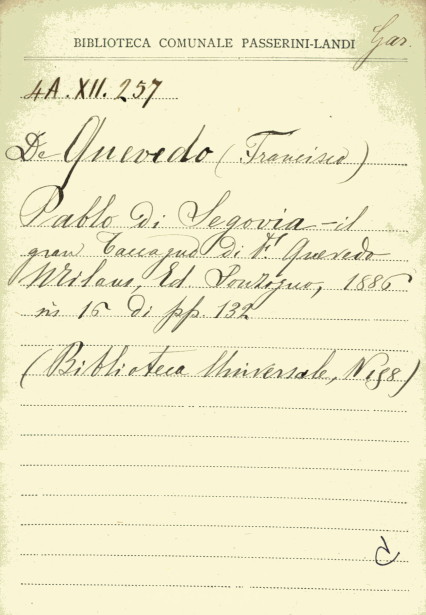 BIBLIOTECA COMUNALE PASSERINI-LANDI Gar.
4A. XII. 257
De Quevedo (Francisco)
Pablo di Segovia - il
gran Taccagno di F. Quevedo
Milano, Ed. Sonzogno, 1886
in 16 di pp. 132
(Biblioteca Universale, N. 198)